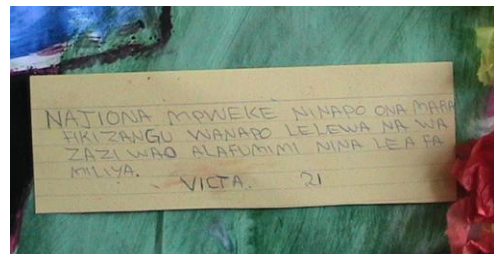 NAJIONA MPWEKE NINAPO ONA MARA
FIKIZANGU WANAPO LELEWA NA WA
ZAZI WAO ALAFUMIMI NINA LEA FA
MILIYA.
VICTA. 21